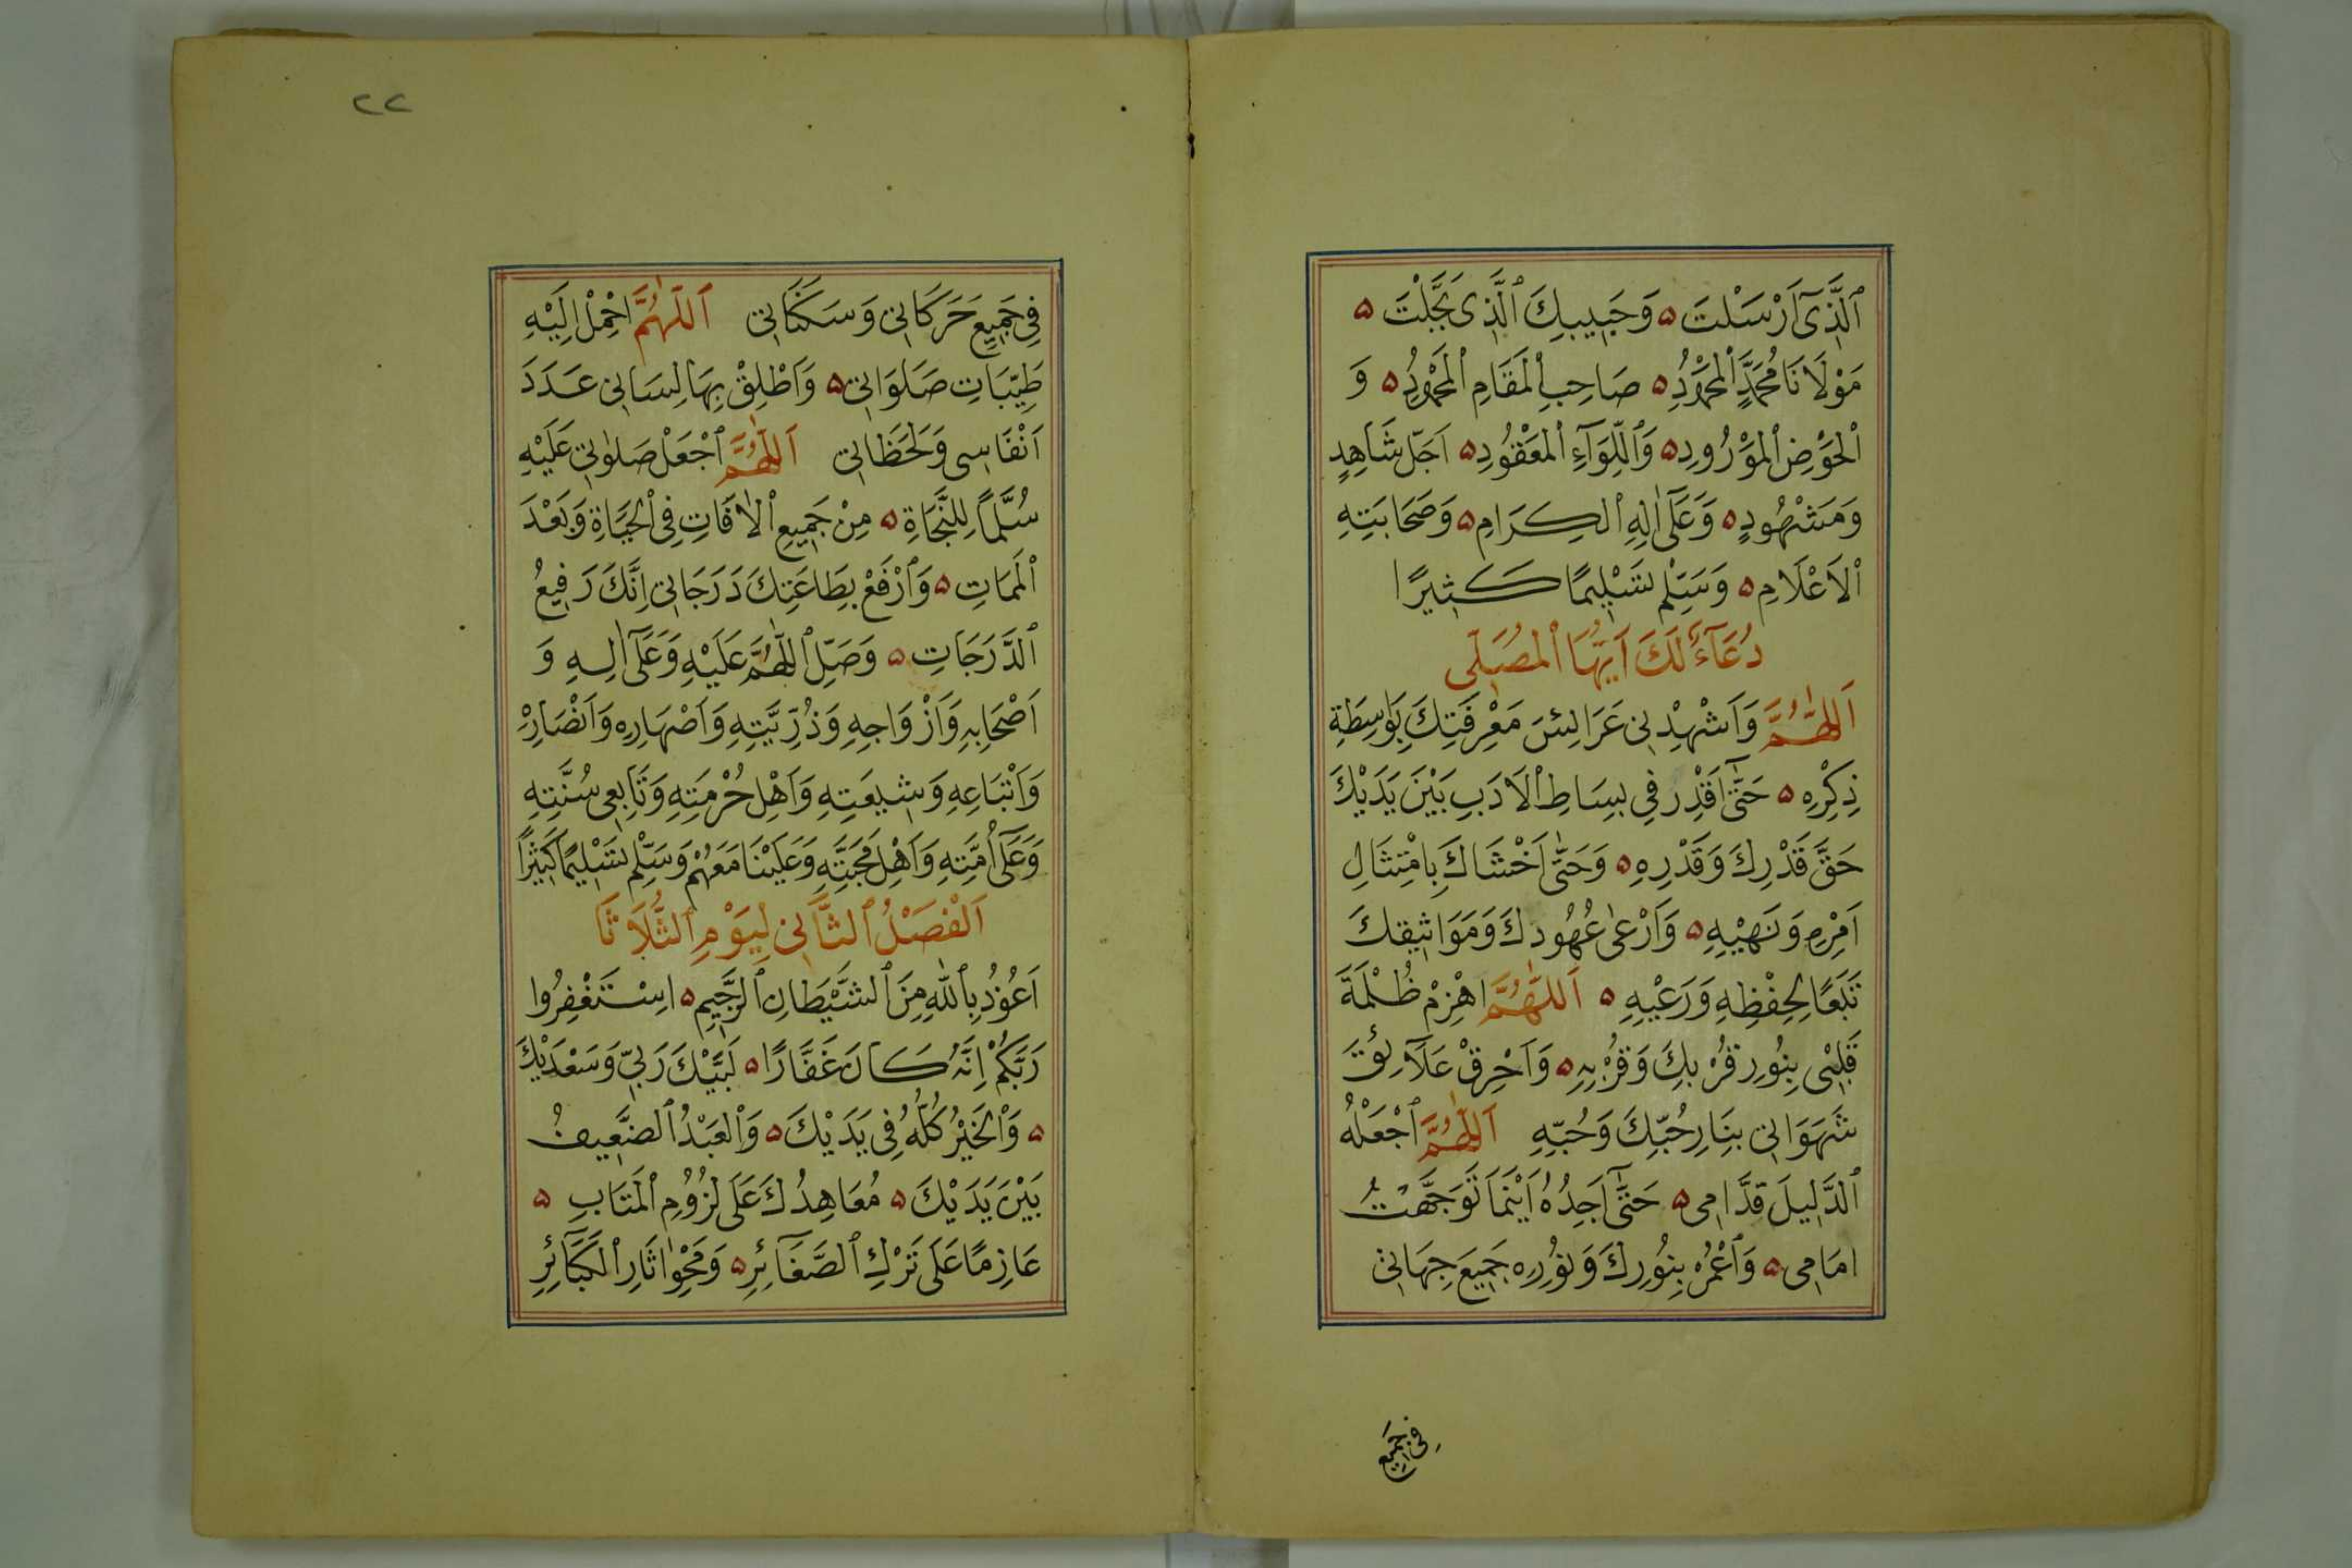 اَلَّذِىٓ اَرْسَلْتَ ۵ وَحَبِيبِكَ ٱلَّذِى بَجَّلْتَ ۵
مَوْلَانَا مُحَمَّدٍ ٱلْمَحْمُودِ ۵ صَاحِبِ ٱلْمَقَامِ ٱلْمَحْمُودِ ۵ وَ
ٱلْحَوْضِ ٱلْمَوْرُودِ ۵ وَٱللِّوَآءِ ٱلْمَعْقُودِ ۵ اَجَلِّ شَاهِدٍ
وَمَشْهُودٍ ۵ وَعَلَىٓ اٰلِهِ ٱلْكِرَامِ ۵ وَصَحَابَتِهِ
ٱلْاَعْلَامِ ۵ وَسَلِّمْ تَسْلِيمًا كَثِيرًا
دُعَآءٌ لَكَ اَيُّهَا ٱلْمُصَلِّى
اَللّٰهُمَّ وَاَشْهِدْنِى عَرَائِسَ مَعْرِفَتِكَ بِوَاسِطَةِ
ذِكْرِهِ ۵ حَتّٰىٓ اَقْدِرَ فِى بِسَاطِ ٱلْاَدَبِ بَيْنَ يَدَيْكَ
حَقَّ قَدْرِكَ وَقَدْرِهِ ۵ وَحَتّٰى اَخْشَاكَ بِامْتِثَالِ
اَمْرِهِ وَنَهْيِهِ ۵ وَاَرْعٰى عُهُودَكَ وَمَوَاثِيقَكَ
تَبَعًا لِحِفْظِهِ وَرَعْيِهِ ۵ اَللّٰهُمَّ اهْزِمْ ظُلْمَةَ
قَلْبِى بِنُورِ قُرْبِكَ وَقُرْبِهِ ۵ وَاَحْرِقْ عَلَآئِقَ
شَهَوَاتِى بِنَارِ حُبِّكَ وَحُبِّهِ اَللّٰهُمَّ ٱجْعَلْهُ
ٱلدَّلِيلَ قُدَّامِى ۵ حَتّٰىٓ اَجِدُهُ اَيْنَمَا تَوَجَّهْتُ
اَمَامِى ۵ وَٱغْمُرْ بِنُورِكَ وَنُورِهِ جَمِيعَ جِهَاتِى
فِى جَمِيعِ
٢٢
فِى جَمِيعِ حَرَكَاتِى وَسَكَنَاتِى اَللّٰهُمَّ احْمِلْ اِلَيْهِ
طَيِّبَاتِ صَلَوَاتِى ۵ وَاَطْلِقْ بِهَا لِسَانِى عَدَدَ
اَنْفَاسِى وَلَحَظَاتِى اَللّٰهُمَّ ٱجْعَلْ صَلٰوتِى عَلَيْهِ
سُلَّمًا لِلنَّجَاةِ ۵ مِنْ جَمِيعِ ٱلْاٰفَاتِ فِى ٱلْحَيَاةِ وَبَعْدَ
ٱلْمَمَاتِ ۵ وَٱرْفَعْ بِطَاعَتِكَ دَرَجَاتِى اِنَّكَ رَفِيعُ
ٱلدَّرَجَاتِ ۵ وَصَلِّ ٱللّٰهُمَّ عَلَيْهِ وَعَلَىٓ اٰلِهِ وَ
اَصْحَابِهِ وَاَزْوَاجِهِ وَذُرِّيَّتِهِ وَاَصْهَارِهِ وَاَنْصَارِهْ
وَاَتْبَاعِهِ وَشِيعَتِهِ وَاَهْلِ حُرْمَتِهِ وَتَابِعِى سُنَّتِهِ
وَعَلَىٓ اُمَّتِهِ وَاَهْلِ مَحَبَّتِهِ وَعَلَيْنَا مَعَهُمْ وَسَلِّمْ تَسْلِيمًا كَثِيرًا
اَلْفَصْلُ ٱلثَّانِى لِيَوْمِ ٱلثُّلَاثَا
اَعُوذُ بِٱللّٰهِ مِنَ ٱلشَّيْطَانِ ٱلرَّجِيمِ ۵ اِسْتَغْفِرُوا
رَبَّكُمْ اِنَّهُ كَانَ غَفَّارًا ۵ لَبَّيْكَ رَبِّى وَسَعْدَيْكَ
۵ وَٱلْخَيْرُ كُلُّهُ فِى يَدَيْكَ ۵ وَٱلْعَبْدُ ٱلضَّعِيفُ
بَيْنَ يَدَيْكَ ۵ مُعَاهِدُكَ عَلَى لُزُومِ ٱلْمَتَابِ ۵
عَازِمًا عَلَى تَرْكِ ٱلصَّغَآئِرِ ۵ وَمَحْوِ اٰثَارِ ٱلْكَبَآئِرِ